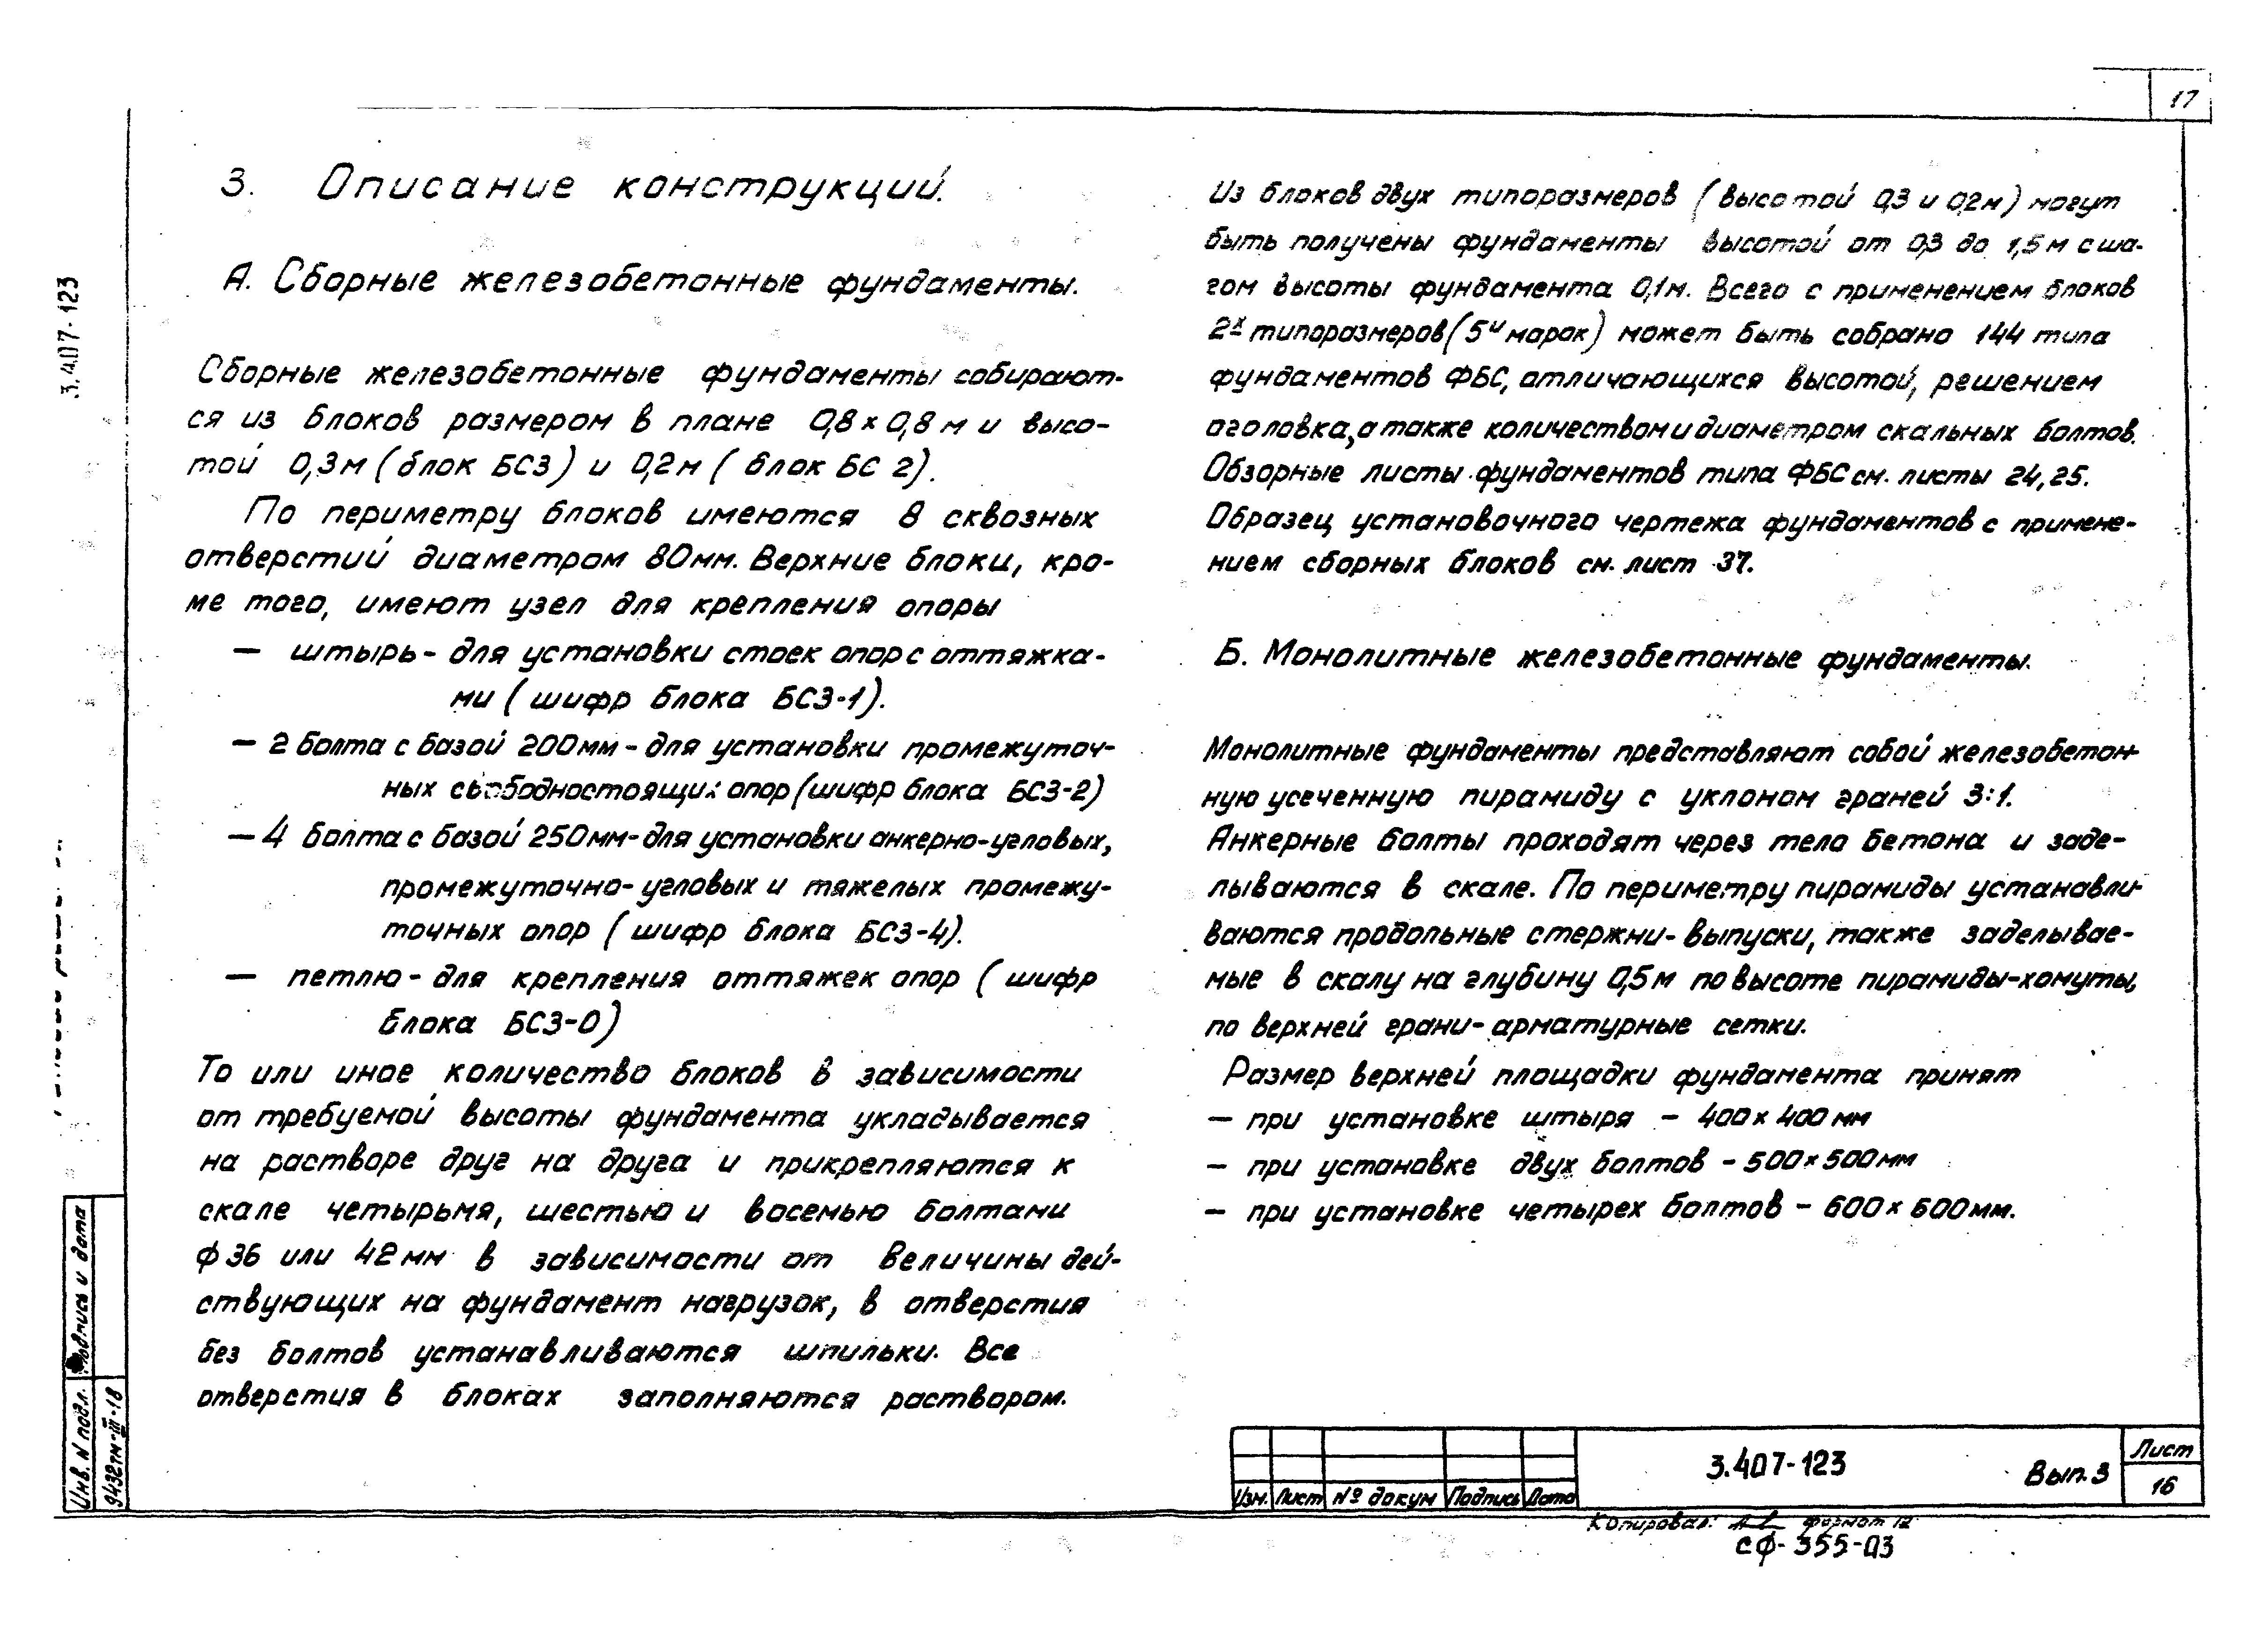 17
3. Описание конструкций.
А. Сборные железобетонные фундаменты.
Сборные железобетонные фундаменты собирают-
ся из блоков размером в плане 0,8 х 0,8 м и высо-
той 0,3м (блок БС3) и 0,2м ( блок БС 2).
По периметру блоков имеются 8 сквозных
отверстий диаметром 80мм. Верхние блоки, кро-
ме того, имеют узел для крепления опоры
— штырь - для установки стоек опор с оттяжка-
ми ( шифр блока БС3-1).
— 2 болта с базой 200мм - для установки промежуточ-
ных свободностоящих опор (шифр блока БС3-2)
— 4 болта с базой 250мм- для установки анкерно-угловых,
промежуточно- угловых и тяжелых промежу-
точных опор ( шифр блока БС3-4).
— петлю - для крепления оттяжек опор ( шифр
блока БС3-0)
То или иное количество блоков в зависимости
от требуемой высоты фундамента укладывается
на растворе друг на друга и прикрепляются к
скале четырьмя, шестью и восемью болтами
ф 36 или 42 мм в зависимости от величины дей-
ствующих на фундамент нагрузок, в отверстия
без болтов устанавливаются шпильки. Все
отверстия в блоках заполняются раствором.
Из блоков двух типоразмеров ( высотой 0,3 и 0,2м) могут
быть получены фундаменты высотой от 0,3 до 1,5м с ша-
гом высоты фундамента 0,1м. Всего с применением блоков
2х типоразмеров (5и марок) может быть собрано 144 типа
фундаментов ФБС, отличающихся высотой, решением
оголовка, а также количеством и диаметром скальных болтов.
Обзорные листы фундаментов типа ФБС см. листы 24, 25.
Образец установочного чертежа фундаментов с примене-
нием сборных блоков см. лист 37.
Б. Монолитные железобетонные фундаменты.
Монолитные фундаменты представляют собой железобетон-
ную усеченную пирамиду с уклоном граней 3:1.
Анкерные болты проходят через тело бетона и заде-
лываются в скале. По периметру пирамиды устанавли-
ваются продольные стержни- выпуски, также заделывае-
мые в скалу на глубину 0,5м по высоте пирамиды-хомуты,
по верхней грани- арматурные сетки.
Размер верхней площадки фундамента принят
— при установке штыря — 400 х 400 мм
— при установке двух болтов - 500 х 500мм
— при установке четырех болтов - 600 х 600мм.
3.407-123
Подпись и дата
Инв. N подл.
9432тм-III-18
Изм. Лист № докум Подпись Дата
3.407-123
Вып. 3
Лист
16
Копировал: формат 12
СФ-355-03